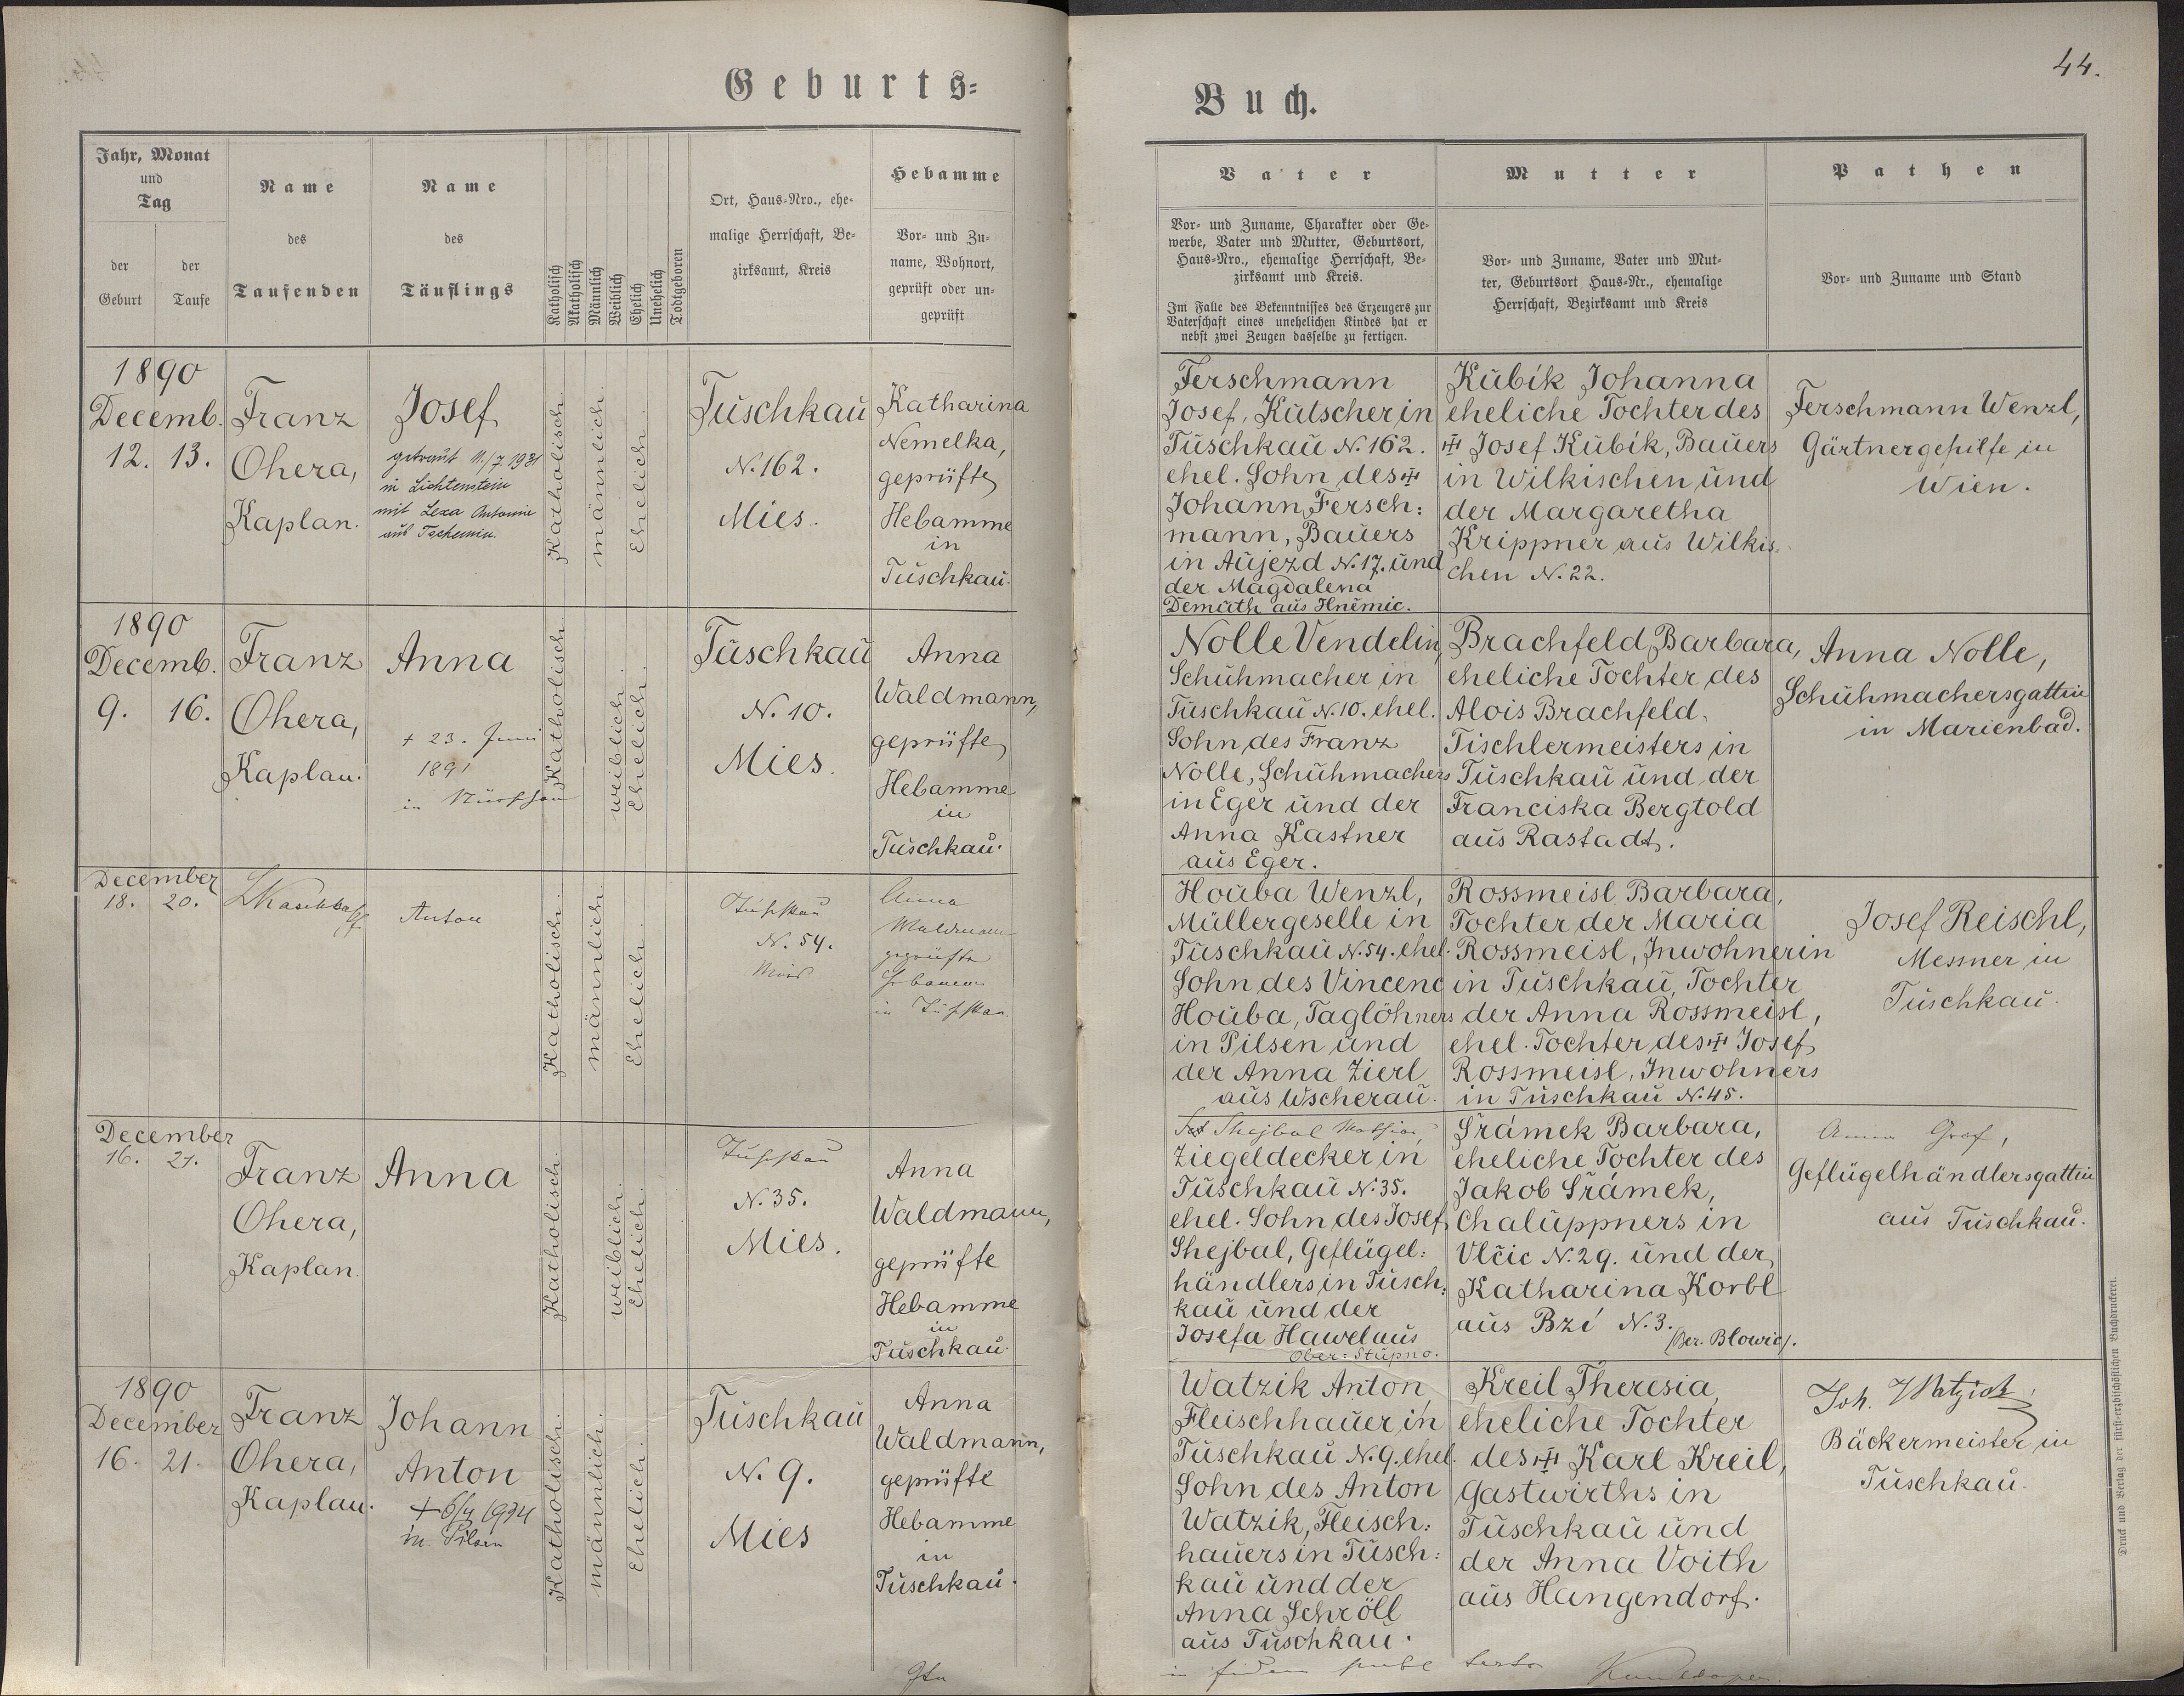 44.
Geburts-
Buch.
Jahr, Monat
und
Tag
der
Geburt
der
Taufe
Name
des
Taufenden
Name
des
Täuflings
Katholisch
Akatholisch
Männlich
Weiblich
Ehelich
Unehelich
Todtgeboren
Ort, Haus-Nro., ehe-
malige Herrschaft, Be-
zirksamt, Kreis
Hebamme
Vor- und Zu-
name, Wohnort,
geprüft oder un-
geprüft
Vater
Vor- und Zuname, Charakter oder Ge-
werbe, Vater und Mutter, Geburtsort,
Haus-Nro., ehemalige Herrschaft, Be-
zirksamt und Kreis.
Im Falle des Bekenntnisses des Erzeugers zur
Vaterschaft eines unehelichen Kindes hat er
nebst zwei Zeugen dasselbe zu fertigen.
Mutter
Vor- und Zuname, Vater und Mut-
ter, Geburtsort Haus-Nr., ehemalige
Herrschaft, Bezirksamt und Kreis
Pathen
Vor- und Zuname und Stand
1890
Decemb.
12. 13.
Franz
Ohera,
Kaplan.
Josef
getraut 11./7 1931
in Lichtenstein
mit Lexa Antonie
aus Tschemin.
Katholisch.
männlich.
Ehelich.
Tuschkau
N. 162.
Mies.
Katharina
Nemelka,
geprüfte
Hebamme
in
Tuschkau.
Ferschmann
Josef, Kutscher in
Tuschkau N. 162.
ehel. Sohn des ☩
Johann Fersch:
mann, Bauers
in Aujezd N. 17. und
der Magdalena
Demuth aus Hněmic.
Kubík Johanna
eheliche Tochter des
☩ Josef Kubík, Bauers
in Wilkischen und
der Margaretha
Krippner aus Wilkis-
chen N. 22.
Ferschmann Wenzl,
Gärtnergehilfe in
Wien.
1890
Decemb.
9. 16.
Franz
Ohera,
Kaplan.
Anna
+ 23. Juni
1891
in Nürschan
Katholisch.
weiblich.
Ehelich.
Tuschkau
N. 10.
Mies.
Anna
Waldmann,
geprüfte
Hebamme
in
Tuschkau.
Nolle Vendelin,
Schuhmacher in
Tuschkau N. 10. ehel.
Sohn des Franz
Nolle, Schuhmachers
in Eger und der
Anna Kastner
aus Eger.
Brachfeld Barbara,
eheliche Tochter des
Alois Brachfeld,
Tischlermeisters in
Tuschkau und der
Franciska Bergtold
aus Rastadt.
Anna Nolle,
Schuhmachersgattin
in Marienbad.
December
18. 20.
Anton
Katholisch.
männlich.
Ehelich.
Tuschkau
N. 54.
Mies
Anna
Waldmann
geprüfte
Hebamme
in Tuschkau.
Houba Wenzl,
Müllergeselle in
Tuschkau N. 54. ehel.
Sohn des Vincenc
Houba, Taglöhners
in Pilsen und
der Anna Zierl
aus Wscherau.
Rossmeisl Barbara,
Tochter der Maria
Rossmeisl, Inwohnerin
in Tuschkau, Tochter
der Anna Rossmeisl,
ehel. Tochter des ☩ Josef
Rossmeisl, Inwohners
in Tuschkau N. 45.
Josef Reischl,
Messner in
Tuschkau.
December
16. 21.
Franz
Ohera,
Kaplan.
Anna
Katholisch.
weiblich.
Ehelich.
Tuschkau
N. 35.
Mies.
Anna
Waldmann,
geprüfte
Hebamme
in
Tuschkau.
Shejbal Mathias,
Ziegeldecker in
Tuschkau N. 35.
ehel. Sohn des Josef
Shejbal, Geflügel:
händlers in Tusch:
kau und der
Josefa Hawel aus
Ober: Stupno.
Šrámek Barbara,
eheliche Tochter des
Jakob Šrámek,
Chaluppners in
Vlčic N. 29. und der
Katharina Korbl
aus Bzí N. 3.
(Bez. Blowic).
Anna Graf,
Geflügelhändlersgattin
aus Tuschkau.
1890
December
16. 21.
Franz
Ohera,
Kaplan.
Johann
Anton
+ 6/4 1974
in Pilsen
Katholisch.
männlich.
Ehelich.
Tuschkau
N. 9.
Mies
Anna
Waldmann,
geprüfte
Hebamme
in
Tuschkau.
Watzik Anton,
Fleischhauer in
Tuschkau N. 9. ehel.
Sohn des Anton
Watzik, Fleisch:
hauers in Tusch:
kau und der
Anna Schröll
aus Tuschkau.
Kreil Theresia,
eheliche Tochter
des ☩ Karl Kreil,
Gastwirths in
Tuschkau und
der Anna Voith
aus Hangendorf.
Joh. Watzick,
Bäckermeister in
Tuschkau.
Druck und Verlag der fürst-erzbischöflichen Buchdruckerei.